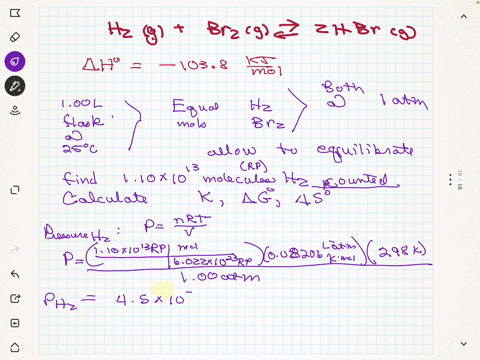 H2 (g) + Br2 (g) ⇌ 2HBr (g)
ΔH° = -103.8 kJ/mol
1.00L flask @ 25°C } Equal mols H2 Br2 } Both @ 1 atm
allow to equilibrate
find 1.10 x 10^13 molecules (RP) H2 counted
Calculate K, ΔG°, ΔS°
Pressure H2: P = nRT/V
P = (1.10x10^13 RP | mol / 6.022x10^23 RP)(0.08206 L atm/K·mol)(298 K)
1.00 atm
P H2 = 4.5 x 10^-